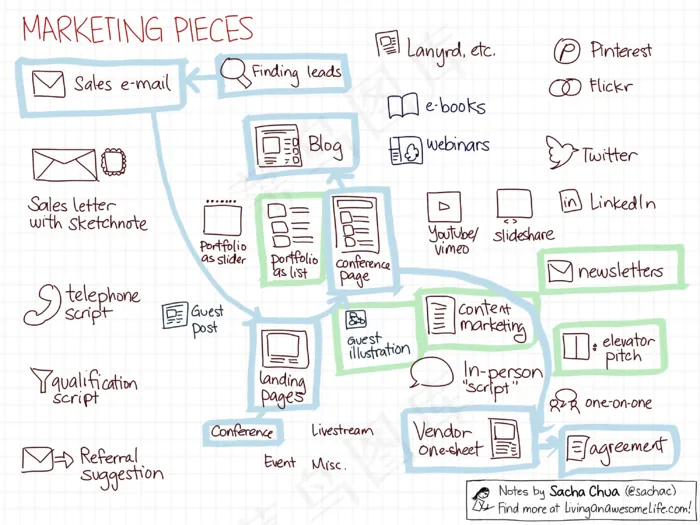 MARKETING PIECES
Sales e-mail
Finding leads
Lanyrd, etc.
Pinterest
Flickr
e-books
Blog
webinars
Twitter
Sales letter
with sketchnote
Portfolio
as slider
portfolio
as list
conference
page
Youtube/
vimeo
slideshare
in
LinkedIn
newsletters
telephone
script
Guest
post
Guest
illustration
content
marketing
: elevator
pitch
landing
pages
qualification
script
In-person
"script"
one-on-one
Conference
Livestream
Event
Misc.
Vendor
one-sheet
agreement
Referral
suggestion
Notes by Sacha Chua (@sachac)
Find more at LivingAnAwesomeLife.com!